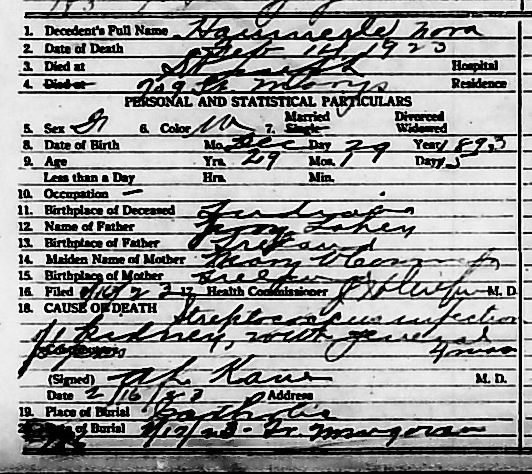 1. Decedent's Full Name Nora
2. Date of Death Feb 14, 1923
3. Died at St Joseph Hospital
4. Died at 709 St. Marys Residence
PERSONAL AND STATISTICAL PARTICULARS
5. Sex F 6. Color W 7. Married Single Divorced Widowed
8. Date of Birth Mo. Dec Day 29 Year 1893
9. Age Yrs. 29 Mos. 1 Days 15
Less than a Day Hrs. Min.
10. Occupation —
11. Birthplace of Deceased Indiana
12. Name of Father
13. Birthplace of Father Ireland
14. Maiden Name of Mother Mary
15. Birthplace of Mother Ireland
16. Filed 2/16/23 17. Health Commissioner M. D.
18. CAUSE OF DEATH Streptococcus infection
of kidney, with general
4 mos
(Signed) Kane M. D.
Date 2/16/23 Address
19. Place of Burial Catholic
20. Date of Burial 2/17/23